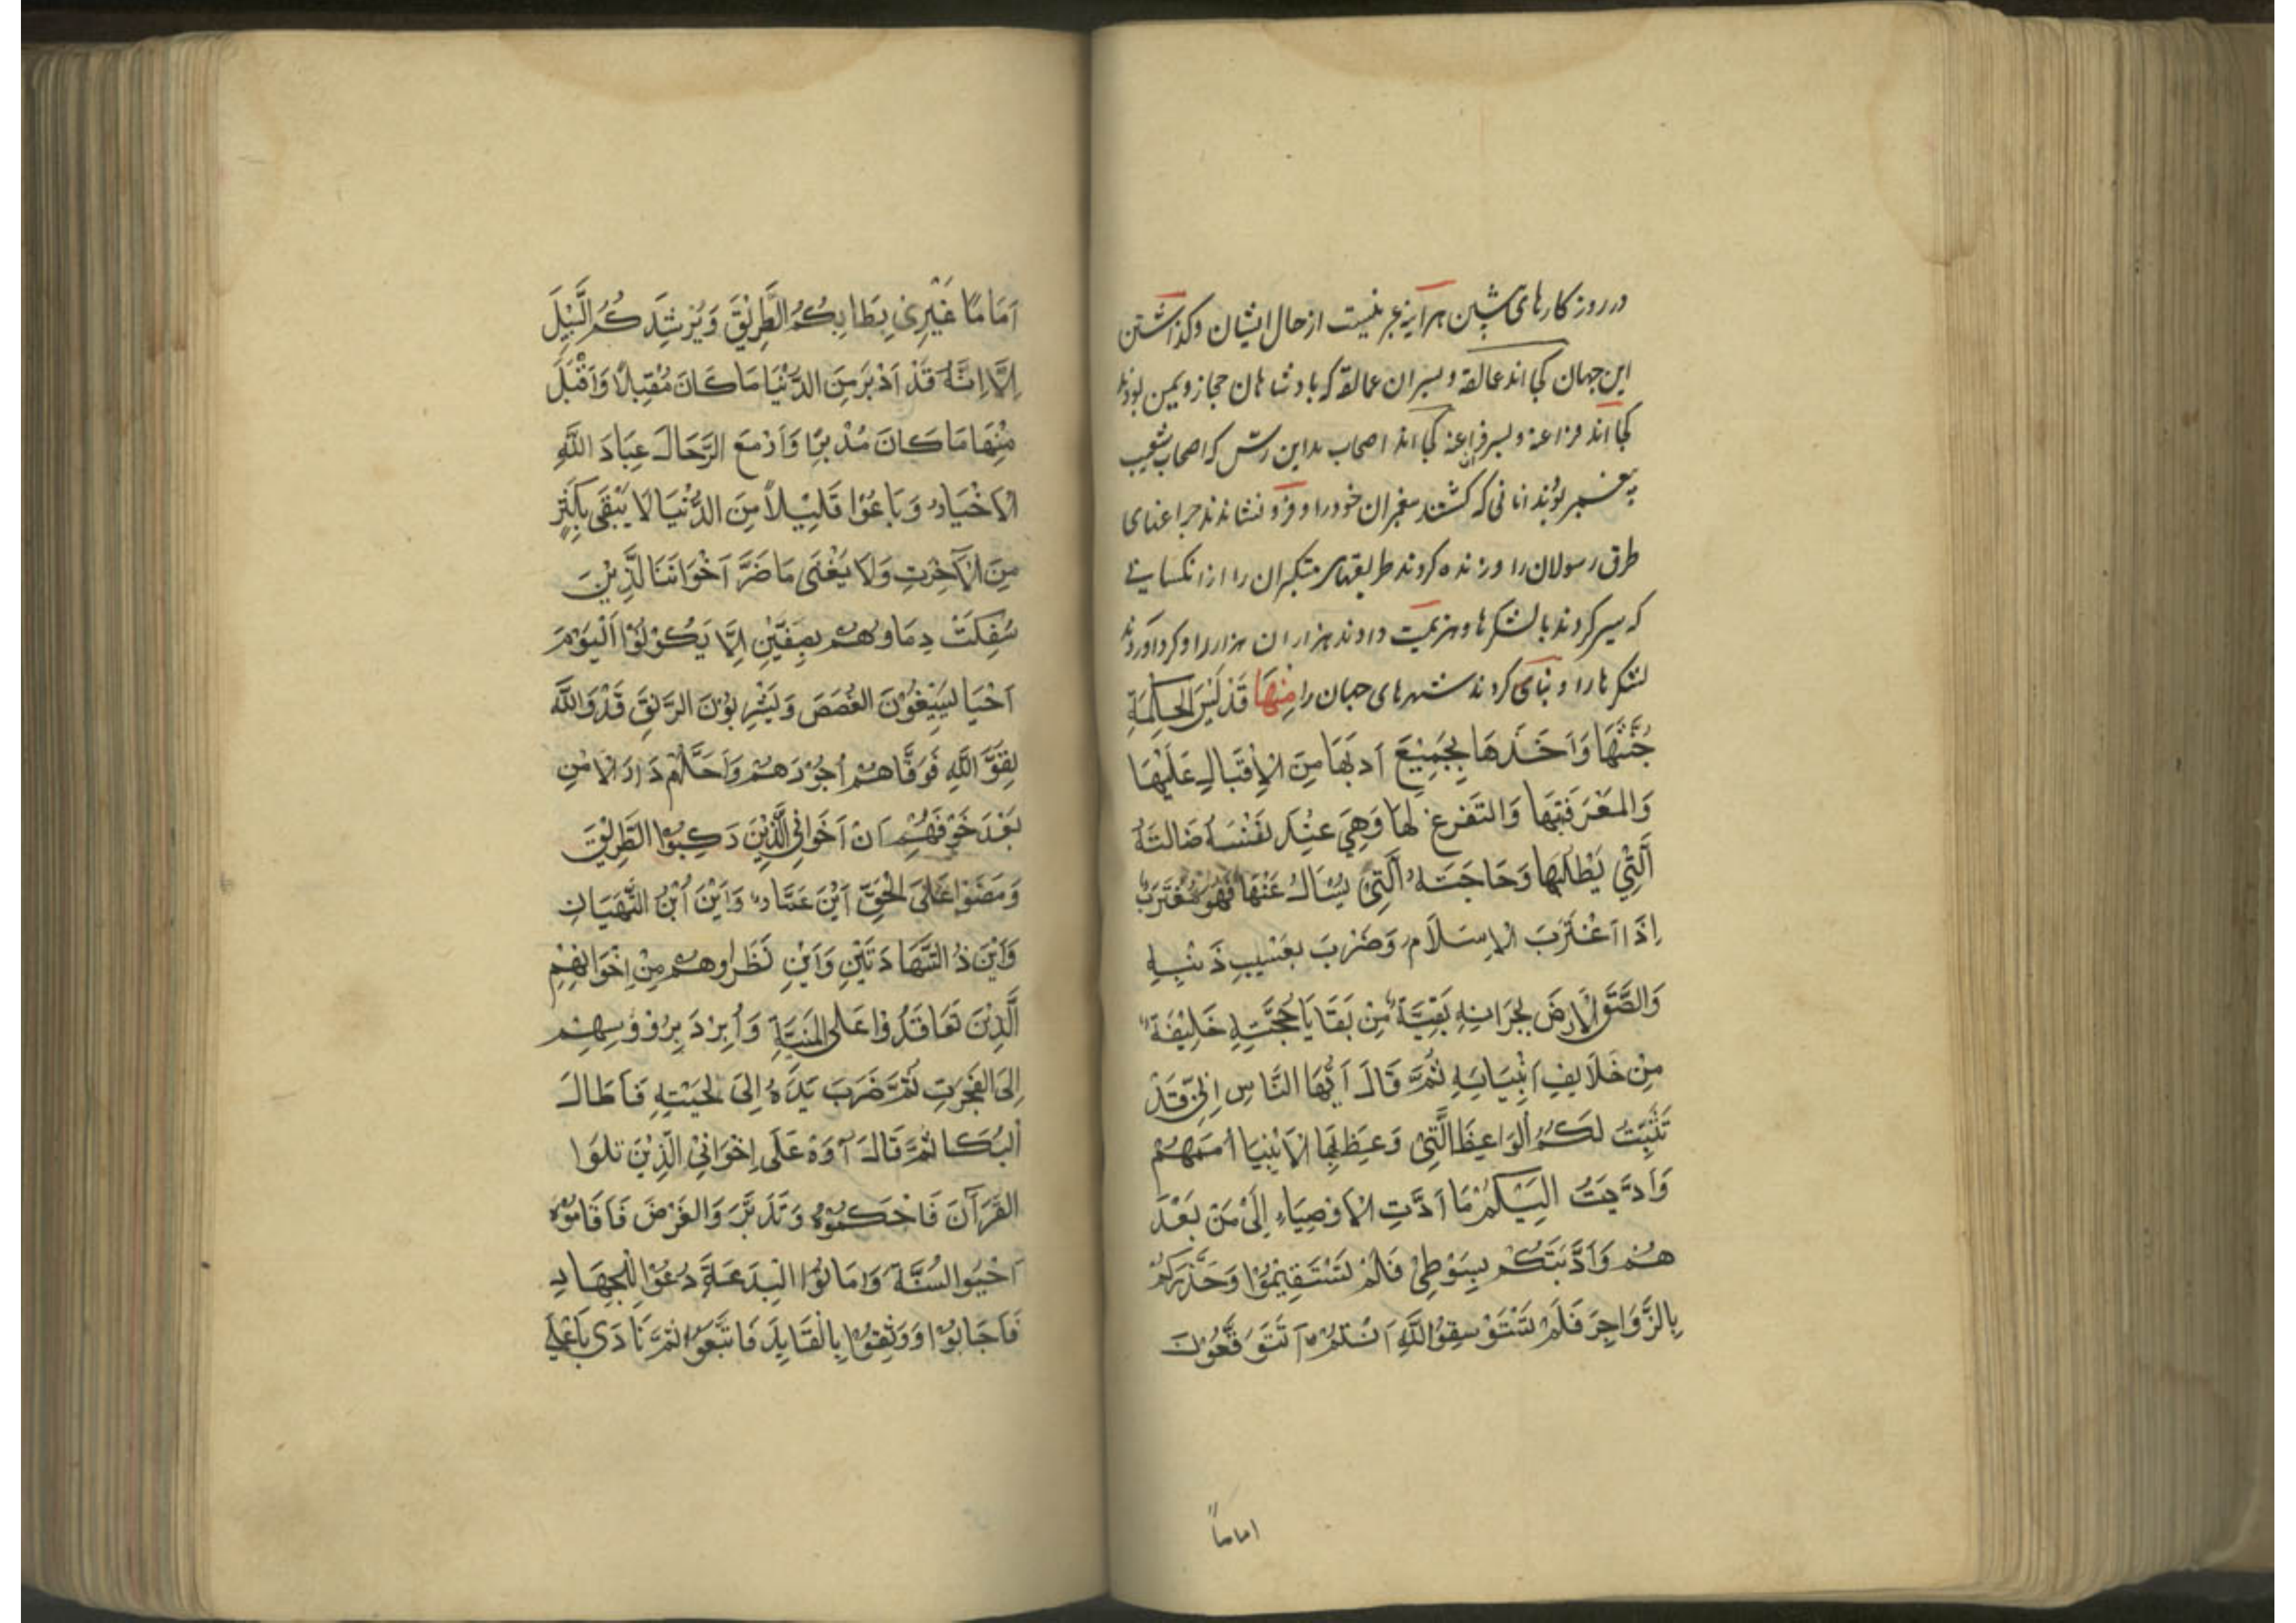 در روزکارهای پیشین هرآینه عبر نیست از حال ایشان وکذاشتن
این جهان کجا اند عمالقة و پسران عمالقة که بادشاهان حجاز و یمین بودند
کجا اند فراعنة و پسر فراعنه کجا اند اصحاب مداین رسّ که اصحاب شعیب
پیغمبر بوُند انانی که کشتند پیغمبران خود را و فرو نشاندند چراغهای
طرق رسولان را و زنده کردند طریقهای متکبران را از انکسانی
که سیر کردند با لشکرها و هزیمت دادند هزاران هزار را و کرد آوردند
لشکرها را و بنای کردند شهرهای جهان را مِنْهَا قَدْ لَبِسَ الحِکمَةِ
جُنَّتَهَا وَاَخَذَهَا بِجَمِیْعَ اَدبَهَا مِنَ الْاِقْبَالِ عَلَیْهَا
وَالمَعْرَفَتِهَا وَالتَفَرغِ لَهَا وَهِیَ عِنْدَ نَفْسَهُ ضَالَتَهُ
اَلَّتِیْ یَطْلُبَهَا وَحَاجَتَهُ اَلَّتِیْ یَسْاَلُ عَنْهَا فَهُوَ مُغْتَرَبٌ
اِذَا اَغْتَرَبَ الْاِسَلَام وَضَرْبَ بِعَسْیِبِ ذَنْبِهِ
وَالصَّقَ الْاَرضَ بِجَرَانِهِ بَقِیَّةٌ مِنْ بَقَایَا حُجَّتِهِ خَلِیْفَةٌ
مِنْ خَلَایِفِ اَنْبِیَایَهِ ثُمَّ قَالَ اَیُّهَا النَّاسِ اِنِّی قَدْ
تَثَبِتَتُ لَکُمُ اَلوَاعِظَ الَّتِیْ وَعِظَ بِهَا الْاَنْبِیَا اُمَمَهُمْ
وَاَدَّیتُ اِلَیْکُمْ مَا اَدَّتِ الْاَوْصِیَاءِ اِلَیْ مَنْ بَعْدَ
هُمْ وَاَدَّبَتَکُمْ بِسَوْطِیْ فَلَمْ تَسْتَقِیْمُوْا وَحَذَّرَتَکُمْ
بِالزَّوَاجِرَ فَلَمْ تَسْتَوْسِقُوْا لِلّٰهِ اَنْتُمْ اَتَتَوَقَّعُوْنَ
اماماً
اَمَامًا غَیْرِیْ یَطَا بِکُمُ الطَّرِیْقَ وَیُرْشِدَکُمُ السَّبِیْلَ
اِلَّا اِنَّهُ قَدْ اَدْبَرَ مِنَ الدُّنْیَا مَا کَانَ مُقْبِلًا وَاَقْبَلَ
مِنْهَا مَا کَانَ مُدْبِرًا وَاَزْمَعَ الرَّحَالَ عِبَادَ اللّٰهِ
الْاَخْیَارُ وَبَاعُوْا قَلِیْلًا مِنَ الدُّنْیَا لَا یَبْقَی بِکَثِیْرٍ
مِنَ الْاٰخِرَتِ وَلَا یَفْنَی مَا ضَرَّ اَخْوَانَنَا لَّذِیْنَ
سُفِکَتْ دِمَاوُهُمْ بِصِفّیْنِ اِلَّا یَکُوْنُوْا اَلْیَوْمَ
اَحْیَا یُسِیْغُوْنَ الغُصَصَ وَیَشْرِبُوْنَ الرَّنِقَ قَدْ وَاللّٰهَ
لِقَوَّ اللّٰهِ فَوَفَّاهُمْ اُجُوْرَهُمْ وَاَحَلَّهُمْ دَارَ الْاَمْنِ
بَعْدَ خَوْفَهُمْ اَنْ اَخَوَانِی الَّذِیْنَ رَکِبُوْا الطَّرِیْقَ
وَمَضَوْا عَلَیَ الْحَقِّ اَیْنَ عَمَّارٌ وَاَیْنَ اُبْنُ التَّهَیَانِ
وَاَیْنَ ذُ الشَّهَادَتَیْنِ وَاَیْنِ نَظَراوهُمْ مِنْ اِخْوَانِهِمْ
اَلَّذِیْنَ تَعَاقَدُوْا عَلَی الْمَنِیَّةِ وَاُبْرِدَ بِرُوُوسِهِمْ
اِلیَ الفَجَرَتِ ثُمَّ ضَرَبَ یَدَهُ اِلَیَ لِحَیْتِهِ فَاَطَالَ
اَلبُکَا ثُمَّ قَالَ آوَهْ عَلَی اِخْوَانِیْ الَّذِیْنَ تَلَوَا
القُرْآنَ فَاحْکَمُوْهُ وَتَدَبَّرَ وَالفَرْضَ فَاَقَامُوْهُ
اَحْیُوا السُنَّةَ وَاَمَاتُوْا الْبِدَعَةَ دُعُوْا لِلْجِهَادِ
فَاَجَابُوْا وَوَثِقِوْا بِالْقَایِدَ فَاتَّبَعَوْا ثُمَّ نَادَی بِاَعْلَی